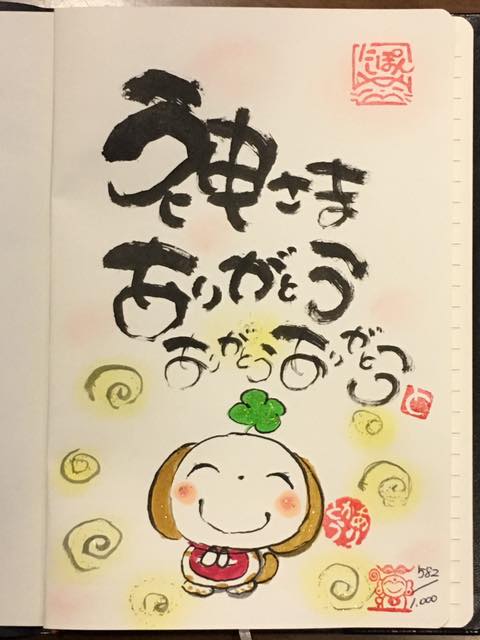 神さま
ありがとう
ありがとう ありがとう
582
1.000